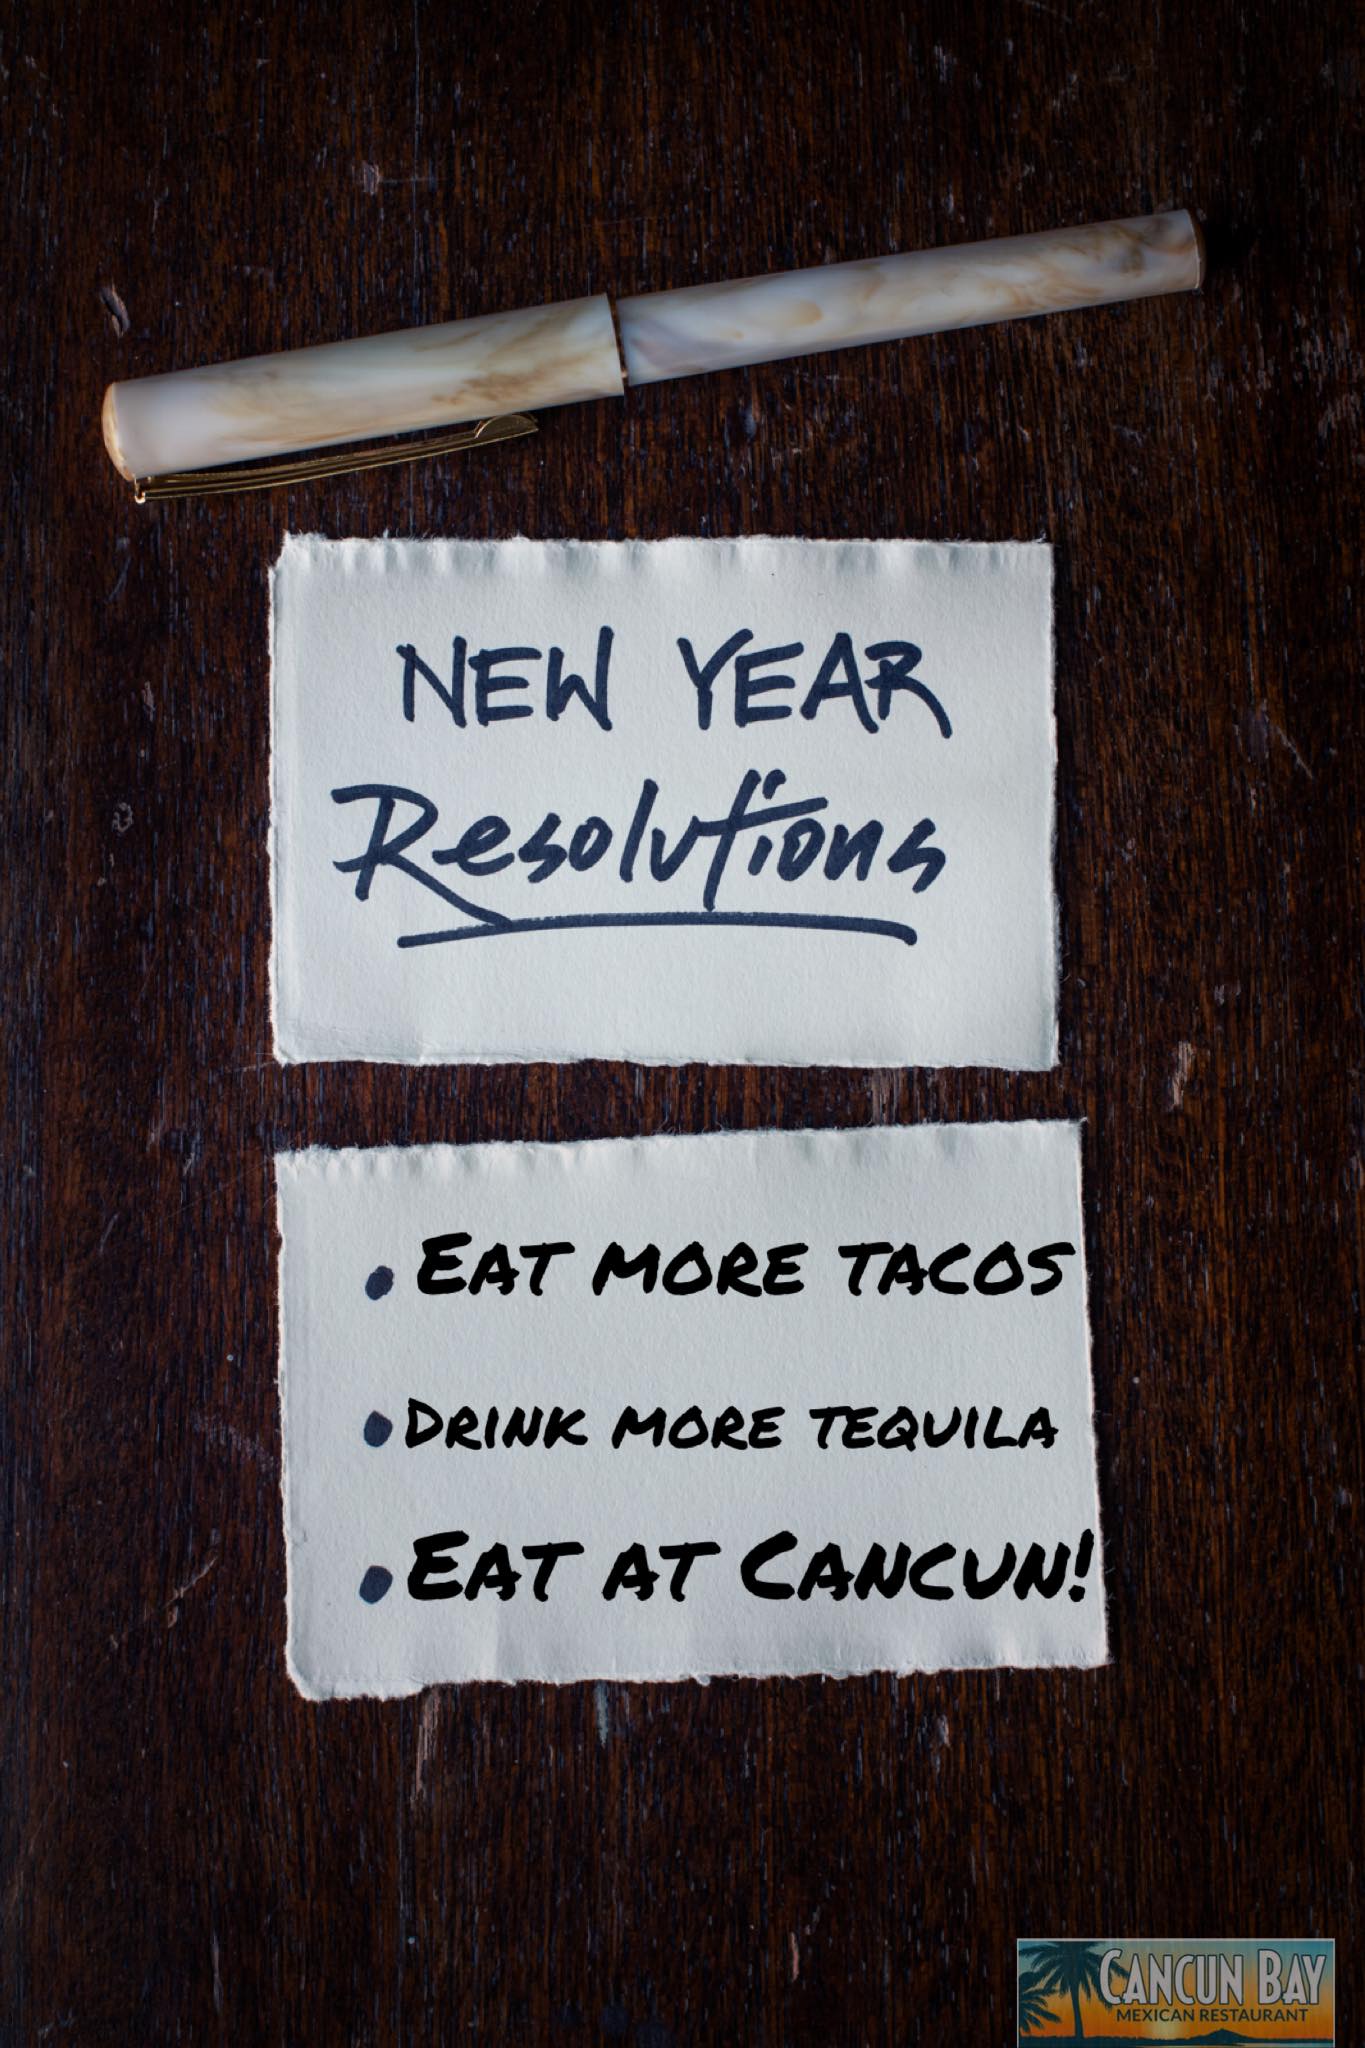 NEW YEAR
Resolutions
• Eat more tacos
• Drink more tequila
• Eat at Cancun!
CANCUN BAY
MEXICAN RESTAURANT